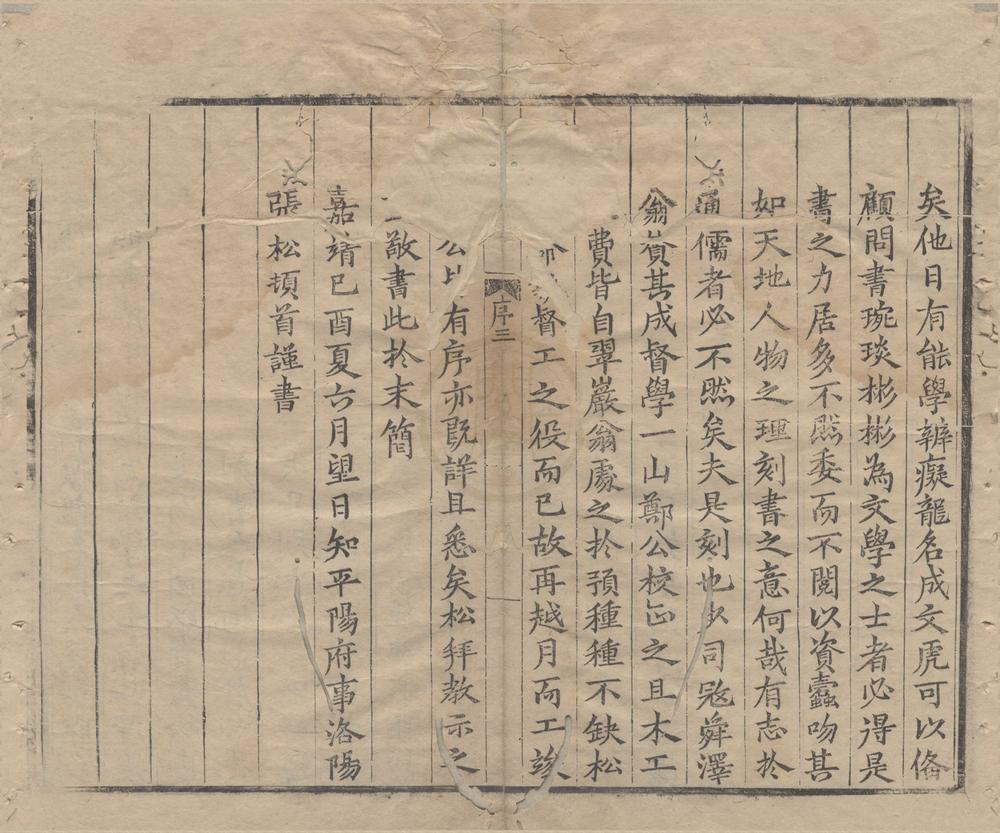 矣他日有能學辨癡龍名成文虎可以俻
顧問書琬琰彬彬為文學之士者必得是
書之力居多不然委而不閱以資蠹吻其
如天地人物之理刻書之意何哉有志扵
通儒者必不然矣夫是刻也少司冦舜澤
翁賛其成督學一山鄭公校正之且木工
費皆自翠巖翁處之扵預種種不缺松
督工之役而已故再越月而工竣
序三
公比有序亦既詳且悉矣松拜教示之
敬書此扵末簡
嘉靖己酉夏六月望日知平陽府事洛陽
張松頓首謹書